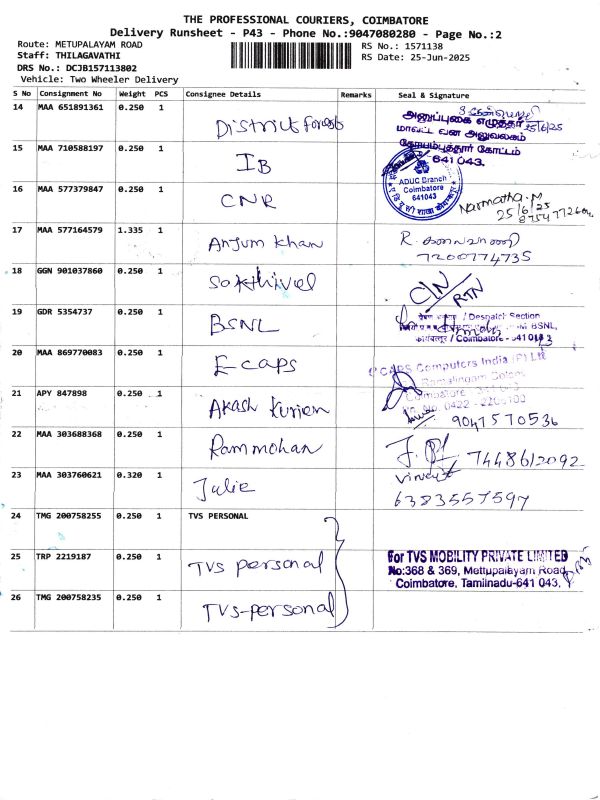 THE PROFESSIONAL COURIERS, COIMBATORE
Delivery Runsheet - P43 - Phone No.:9047080280 - Page No.:2
Route: METUPALAYAM ROAD
Staff: THILAGAVATHI
DRS No.: DCJB157113802
Vehicle: Two Wheeler Delivery
RS No.: 1571138
RS Date: 25-Jun-2025
S No Consignment No Weight PCS Consignee Details Remarks Seal & Signature
14 MAA 651891361 0.250 1 District forests
25/6/25
அனுப்புகை எழுத்தர்
மாவட்ட வன அலுவலகம்
கோயம்புத்தூர் கோட்டம்
641 043.
15 MAA 710588197 0.250 1 IB
ADUC Branch
Coimbatore
641043
16 MAA 577379847 0.250 1 CNR
Narmatha.M
25/6/25
17 MAA 577164579 1.335 1 Anjum khan
R. கலைவாணி
7200774735
18 GGN 901037860 0.250 1 Sakthivel
C/N
RTN
19 GDR 5354737 0.250 1 BSNL
/ Despatch Section
BSNL,
/ Coimbatore - 641 043
20 MAA 869770083 0.250 1 E caps
CAPS Computers India (P) Ltd
Ramalingam Colony
Coimbatore
21 APY 847898 0.250 1 Akash Kurien
9047570536
22 MAA 303688368 0.250 1 Rammohan
7448612092
23 MAA 303760621 0.320 1 Julie
Vineet
6383557597
24 TMG 200758255 0.250 1 TVS PERSONAL
25 TRP 2219187 0.250 1 TVS personal
For TVS MOBILITY PRIVATE LIMITED
No:368 & 369, Mettupalayam Road,
Coimbatore, Tamilnadu-641 043.
26 TMG 200758235 0.250 1 TVS-personal